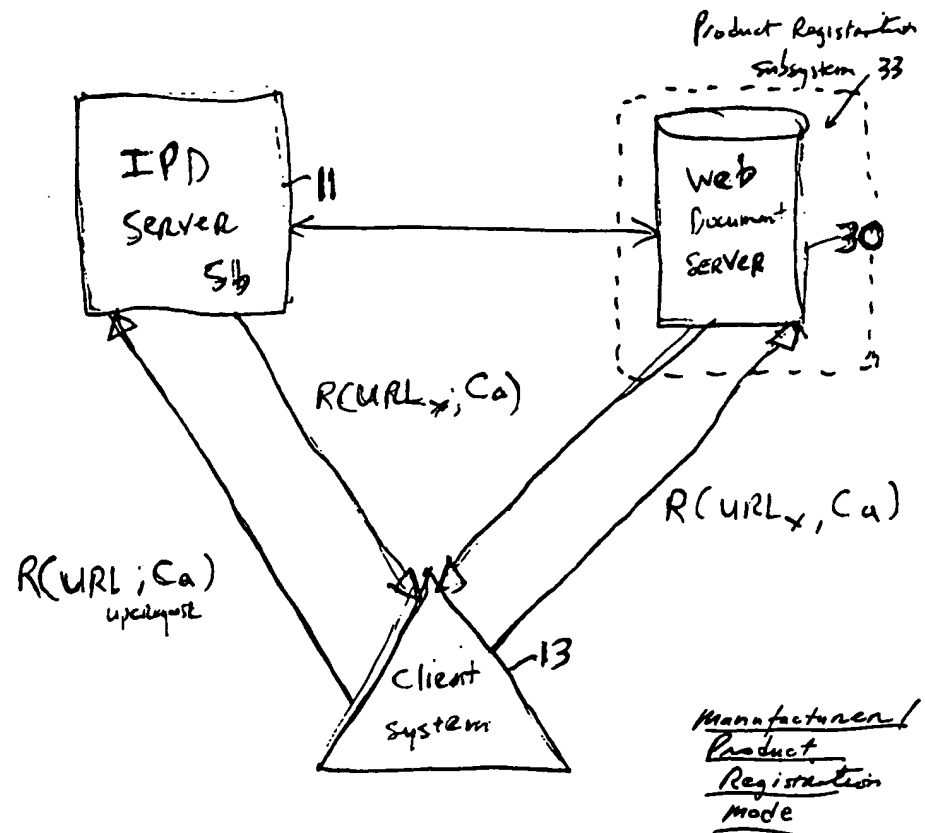 Product Registration
subsystem 33
IPD
Server
11
Web
Document
Server
30
R(URLx; Ca)
R(URLx, Ca)
R(URL; Ca)
Client
system
13
Manufacturer/
Product
Registration
Mode